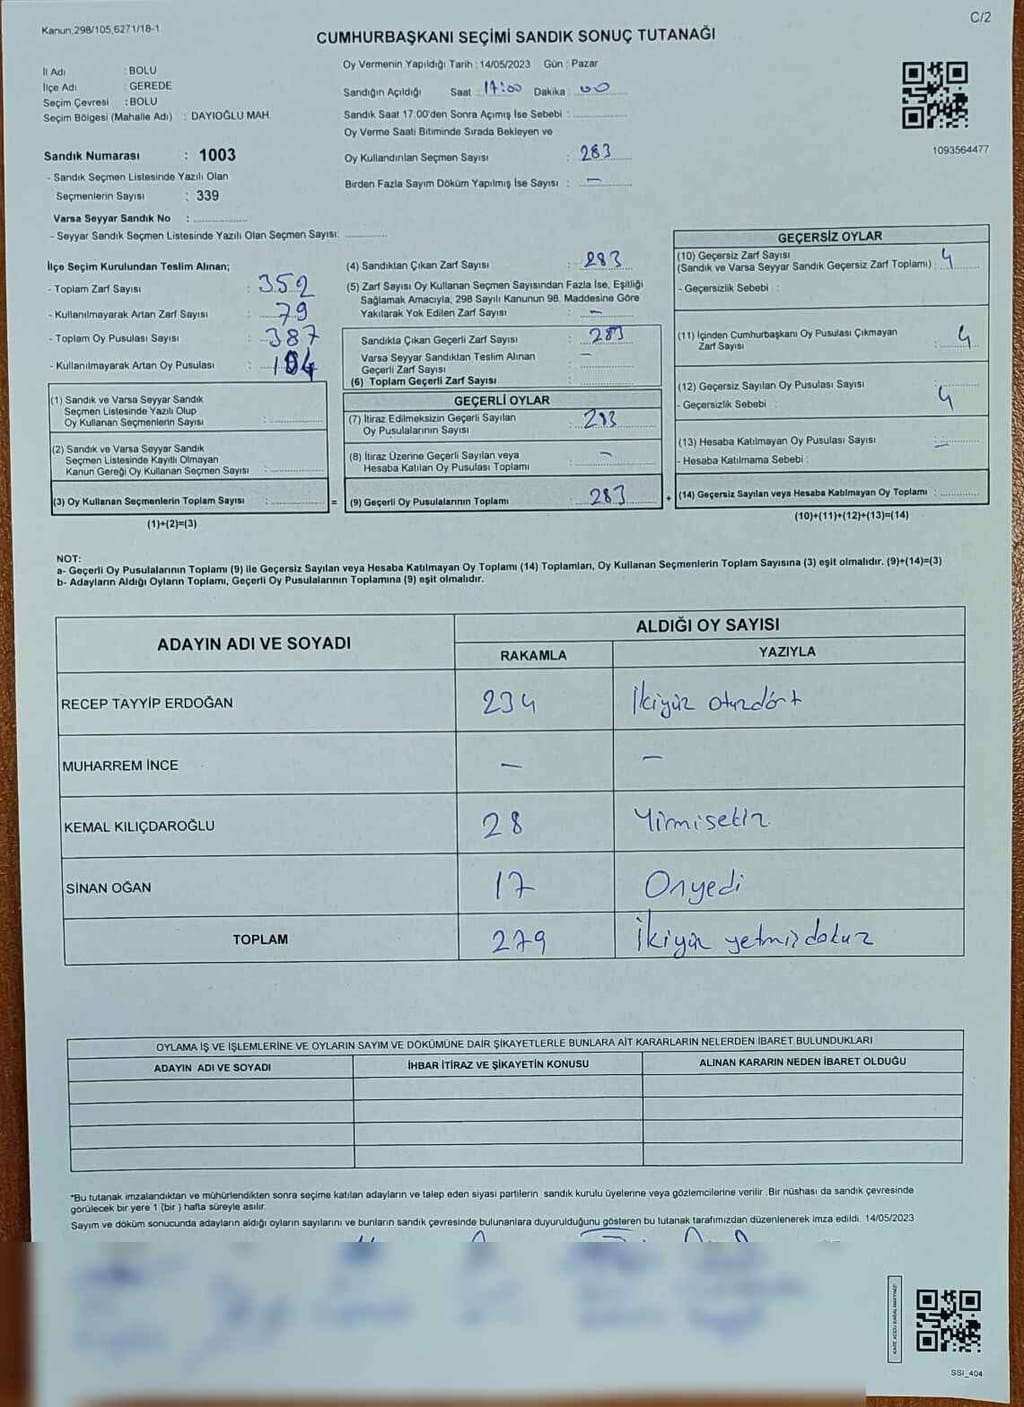 Kanun;298/105,6271/18-1
C/2
CUMHURBAŞKANI SEÇİMİ SANDIK SONUÇ TUTANAĞI
İl Adı : BOLU
İlçe Adı : GEREDE
Seçim Çevresi : BOLU
Seçim Bölgesi (Mahalle Adı) : DAYIOĞLU MAH.
Oy Vermenin Yapıldığı Tarih : 14/05/2023 Gün : Pazar
Sandığın Açıldığı Saat 17:00 Dakika 00
Sandık Saat 17:00'den Sonra Açımış İse Sebebi :
Oy Verme Saati Bitiminde Sırada Bekleyen ve
Oy Kullandırılan Seçmen Sayısı : 283
Birden Fazla Sayım Döküm Yapılmış İse Sayısı : —
1093564477
Sandık Numarası : 1003
- Sandık Seçmen Listesinde Yazılı Olan
Seçmenlerin Sayısı : 339
Varsa Seyyar Sandık No :
- Seyyar Sandık Seçmen Listesinde Yazılı Olan Seçmen Sayısı:
İlçe Seçim Kurulundan Teslim Alınan;
- Toplam Zarf Sayısı : 352
- Kullanılmayarak Artan Zarf Sayısı : 79
- Toplam Oy Pusulası Sayısı : 387
- Kullanılmayarak Artan Oy Pusulası : 104
(1) Sandık ve Varsa Seyyar Sandık
Seçmen Listesinde Yazılı Olup
Oy Kullanan Seçmenlerin Sayısı :
(2) Sandık ve Varsa Seyyar Sandık
Seçmen Listesinde Kayıtlı Olmayan
Kanun Gereği Oy Kullanan Seçmen Sayısı :
(3) Oy Kullanan Seçmenlerin Toplam Sayısı :
=
(1)+(2)=(3)
(4) Sandıktan Çıkan Zarf Sayısı : 283
(5) Zarf Sayısı Oy Kullanan Seçmen Sayısından Fazla İse, Eşitliği
Sağlamak Amacıyla, 298 Sayılı Kanunun 98. Maddesine Göre
Yakılarak Yok Edilen Zarf Sayısı : —
Sandıkta Çıkan Geçerli Zarf Sayısı : 283
Varsa Seyyar Sandıktan Teslim Alınan —
Geçerli Zarf Sayısı :
(6) Toplam Geçerli Zarf Sayısı :
GEÇERLİ OYLAR
(7) İtiraz Edilmeksizin Geçerli Sayılan
Oy Pusulalarının Sayısı : 283
(8) İtiraz Üzerine Geçerli Sayılan veya —
Hesaba Katılan Oy Pusulası Toplamı :
(9) Geçerli Oy Pusulalarının Toplamı : 283
+
GEÇERSİZ OYLAR
(10) Geçersiz Zarf Sayısı
(Sandık ve Varsa Seyyar Sandık Geçersiz Zarf Toplamı) : 4
- Geçersizlik Sebebi :
(11) İçinden Cumhurbaşkanı Oy Pusulası Çıkmayan
Zarf Sayısı : 4
(12) Geçersiz Sayılan Oy Pusulası Sayısı : 4
- Geçersizlik Sebebi :
(13) Hesaba Katılmayan Oy Pusulası Sayısı : —
- Hesaba Katılmama Sebebi :
(14) Geçersiz Sayılan veya Hesaba Katılmayan Oy Toplamı :
(10)+(11)+(12)+(13)=(14)
NOT:
a- Geçerli Oy Pusulalarının Toplamı (9) ile Geçersiz Sayılan veya Hesaba Katılmayan Oy Toplamı (14) Toplamları, Oy Kullanan Seçmenlerin Toplam Sayısına (3) eşit olmalıdır. (9)+(14)=(3)
b- Adayların Aldığı Oyların Toplamı, Geçerli Oy Pusulalarının Toplamına (9) eşit olmalıdır.
ADAYIN ADI VE SOYADI
ALDIĞI OY SAYISI
RAKAMLA YAZIYLA
RECEP TAYYİP ERDOĞAN 234 İkiyüz otuzdört
MUHARREM İNCE — —
KEMAL KILIÇDAROĞLU 28 Yirmisekiz
SİNAN OĞAN 17 Onyedi
TOPLAM 279 İkiyüz yetmiş dokuz
OYLAMA İŞ VE İŞLEMLERİNE VE OYLARIN SAYIM VE DÖKÜMÜNE DAİR ŞİKAYETLERLE BUNLARA AİT KARARLARIN NELERDEN İBARET BULUNDUKLARI
ADAYIN ADI VE SOYADI İHBAR İTİRAZ VE ŞİKAYETİN KONUSU ALINAN KARARIN NEDEN İBARET OLDUĞU
*Bu tutanak imzalandıktan ve mühürlendikten sonra seçime katılan adayların ve talep eden siyasi partilerin sandık kurulu üyelerine veya gözlemcilerine verilir. Bir nüshası da sandık çevresinde
görülecek bir yere 1 (bir) hafta süreyle asılır.
Sayım ve döküm sonucunda adayların aldığı oyların sayılarını ve bunların sandık çevresinde bulunanlara duyurulduğunu gösteren bu tutanak tarafımızdan düzenlenerek imza edildi. 14/05/2023
SSI_404